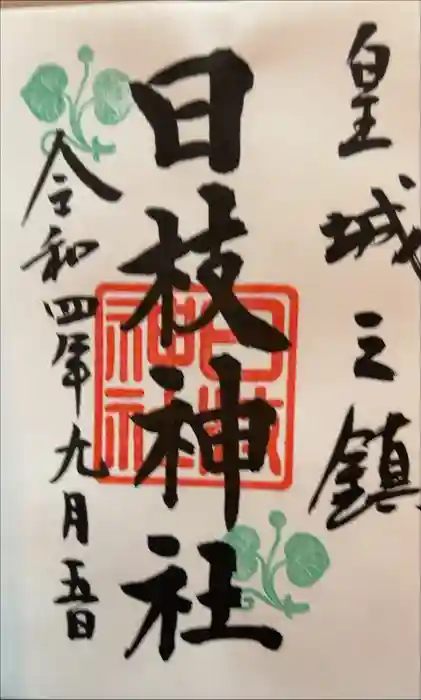 皇城之鎮
日枝神社
令和四年九月五日
日枝
神社